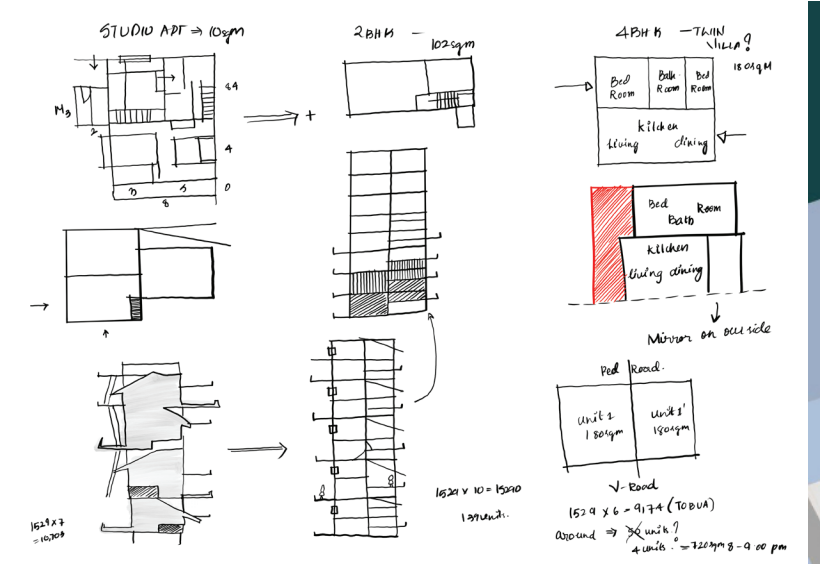 STUDIO APT ⇒ 10sqm
84
M3
2
4
3 5 0
8
1529 x 7
= 10,703
2BHK —
102sqm
+
1529 x 10 = 15290
139 units.
4BHK — TWIN
VILLA?
180sqM
Bed Room
Bath Room
Bed Room
kitchen
living dining
Bed Bath Room
kitchen
living dining
Mirror on our side
Ped Road.
Unit 1
180sqm
Unit 1'
180sqm
V-Road
1529 x 6 - 9174 (TOBUA)
around ⇒ 50 units?
4 units. = 720sqm 8-9:00 pm